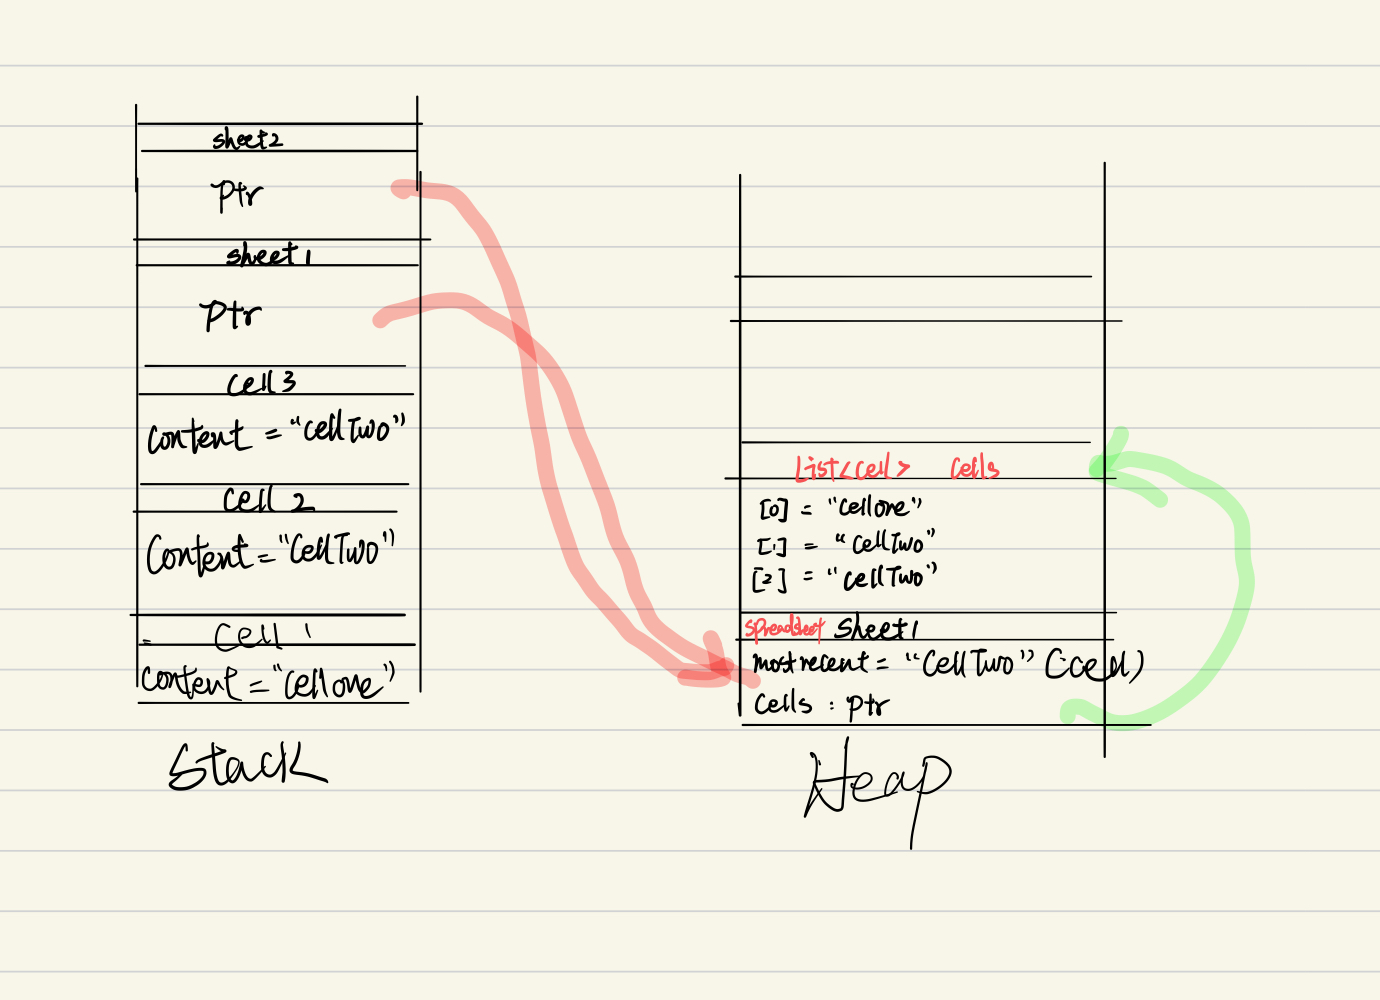 sheet2
Ptr
sheet1
Ptr
cell3
content = "cellTwo"
cell 2
Content = "CellTwo"
Cell 1
content = "cellone"
Stack
List<cell> cells
[0] = "cellone"
[1] = "cellTwo"
[2] = "cellTwo"
Spreadsheet sheet1
mostrecent = "CellTwo" (:cell)
cells : ptr
Heap